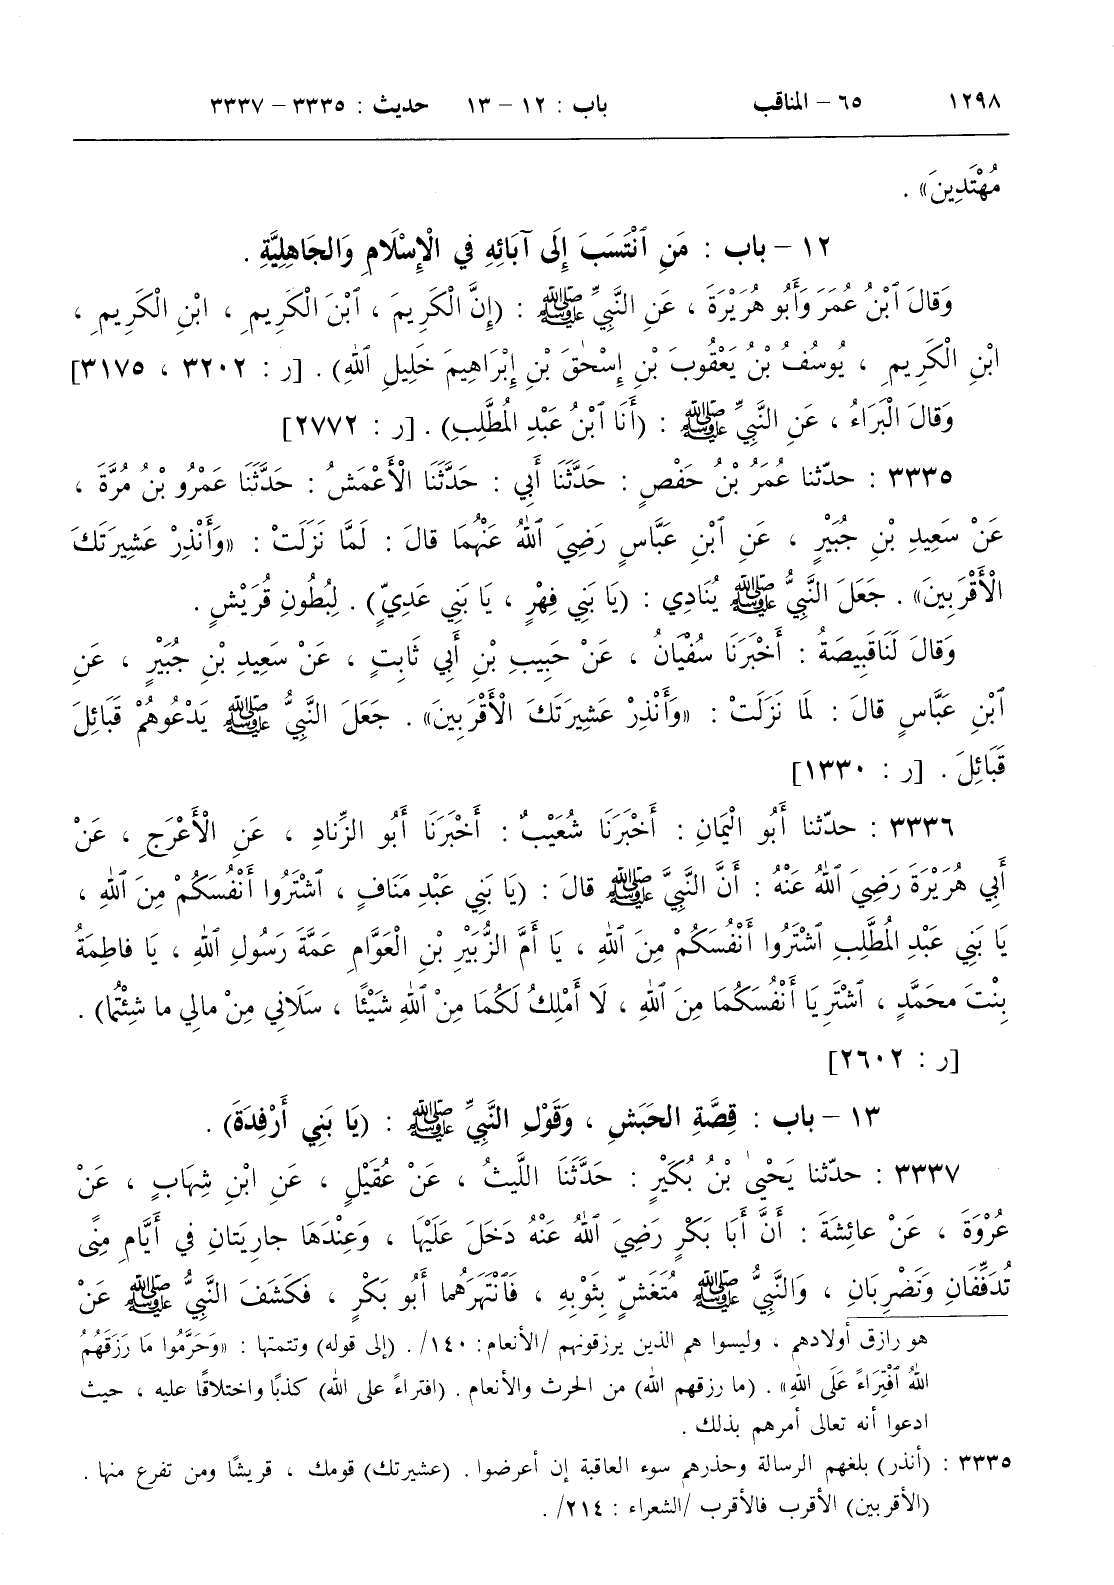 ١٢٩٨ ٦٥ – المناقب باب : ١٢ – ١٣ حديث : ٣٣٣٥ – ٣٣٣٧
مُهْتَدِينَ» .
١٢ – باب : مَنِ ٱنْتَسَبَ إِلَى آبَائِهِ فِي الْإِسْلَامِ وَالجَاهِلِيَّةِ .
وَقالَ ٱبْنُ عُمَرَ وَأَبُو هُرَيْرَةَ ، عَنِ النَّبِيِّ ﷺ : (إِنَّ الْكَرِيمَ ، ٱبْنَ الْكَرِيمِ ، ابْنِ الْكَرِيمِ ،
ابْنِ الْكَرِيمِ ، يُوسُفُ بْنُ يَعْقُوبَ بْنِ إِسْحٰقَ بْنِ إِبْرَاهِيمَ خَلِيلِ ٱللهِ) . [ر : ٣٢٠٢ ، ٣١٧٥]
وَقالَ الْبَرَاءُ ، عَنِ النَّبِيِّ ﷺ : (أَنَا ٱبْنُ عَبْدِ المُطَّلِبِ) . [ر : ٢٧٧٢]
٣٣٣٥ : حدّثنا عُمَرُ بْنُ حَفْصٍ : حَدَّثَنَا أَبِي : حَدَّثَنَا الْأَعْمَشُ : حَدَّثَنَا عَمْرُو بْنُ مُرَّةَ ،
عَنْ سَعِيدِ بْنِ جُبَيْرٍ ، عَنِ ٱبْنِ عَبَّاسٍ رَضِيَ ٱللهُ عَنْهُمَا قالَ : لَمَّا نَزَلَتْ : «وَأَنْذِرْ عَشِيرَتَكَ
الْأَقْرَبِينَ» . جَعَلَ النَّبِيُّ ﷺ يُنَادِي : (يَا بَنِي فِهْرٍ ، يَا بَنِي عَدِيٍّ) . لِبُطُونِ قُرَيْشٍ .
وَقالَ لَنَاقَبِيصَةُ : أَخْبَرَنَا سُفْيَانُ ، عَنْ حَبِيبِ بْنِ أَبِي ثَابِتٍ ، عَنْ سَعِيدِ بْنِ جُبَيْرٍ ، عَنِ
ٱبْنِ عَبَّاسٍ قالَ : لَمَا نَزَلَتْ : «وَأَنْذِرْ عَشِيرَتَكَ الْأَقْرَبِينَ» . جَعَلَ النَّبِيُّ ﷺ يَدْعُوهُمْ قَبَائِلَ
قَبَائِلَ . [ر : ١٣٣٠]
٣٣٣٦ : حدّثنا أَبُو الْيَمَانِ : أَخْبَرَنَا شُعَيْبٌ : أَخْبَرَنَا أَبُو الزِّنادِ ، عَنِ الْأَعْرَجِ ، عَنْ
أَبِي هُرَيْرَةَ رَضِيَ ٱللهُ عَنْهُ : أَنَّ النَّبِيَّ ﷺ قالَ : (يَا بَنِي عَبْدِ مَنَافٍ ، ٱشْتَرُوا أَنْفُسَكُمْ مِنَ ٱللهِ ،
يَا بَنِي عَبْدِ المُطَّلِبِ ٱشْتَرُوا أَنْفُسَكُمْ مِنَ ٱللهِ ، يَا أُمَّ الزُّبَيْرِ بْنِ الْعَوَّامِ عَمَّةَ رَسُولِ ٱللهِ ، يَا فاطِمَةُ
بِنْتَ محَمَّدٍ ، ٱشْتَرِيَا أَنْفُسَكُمَا مِنَ ٱللهِ ، لَا أَمْلِكُ لَكُمَا مِنْ ٱللهِ شَيْئًا ، سَلَانِي مِنْ مالِي ما شِئْتُمَا) .
[ر : ٢٦٠٢]
١٣ – باب : قِصَّةِ الحَبَشِ ، وَقَوْلِ النَّبِيِّ ﷺ : (يَا بَنِي أَرْفِدَةَ) .
٣٣٣٧ : حدّثنا يَحْيٰى بْنُ بُكَيْرٍ : حَدَّثَنَا اللَّيثُ ، عَنْ عُقَيْلٍ ، عَنِ ابْنِ شِهَابٍ ، عَنْ
عُرْوَةَ ، عَنْ عائِشَةَ : أَنَّ أَبَا بَكْرٍ رَضِيَ ٱللهُ عَنْهُ دَخَلَ عَلَيْهَا ، وَعِنْدَهَا جارِيَتَانِ فِي أَيَّامِ مِنًى
تُدَفِّفَانِ وَتَضْرِبَانِ ، وَالنَّبِيُّ ﷺ مُتَغَشٍّ بِثَوْبِهِ ، فَٱنْتَهَرَهُما أَبُو بَكْرٍ ، فَكَشَفَ النَّبِيُّ ﷺ عَنْ
هو رازق أولادهم ، وليسوا هم الذين يرزقونهم /الأنعام: ١٤٠/. (إلى قوله) وتتمتها : «وَحَرَّمُوا مَا رَزَقَهُمُ
اللهُ ٱفْتِرَاءً عَلَى اللهِ» . (ما رزقهم الله) من الحرث والأنعام . (افتراءً على الله) كذبًا واختلاقًا عليه ، حيث
ادعوا أنه تعالى أمرهم بذلك .
٣٣٣٥ : (أنذر) بلغهم الرسالة وحذرهم سوء العاقبة إن أعرضوا . (عشيرتك) قومك ، قريشًا ومن تفرع منها .
(الأقربين) الأقرب فالأقرب /الشعراء : ٢١٤/ .